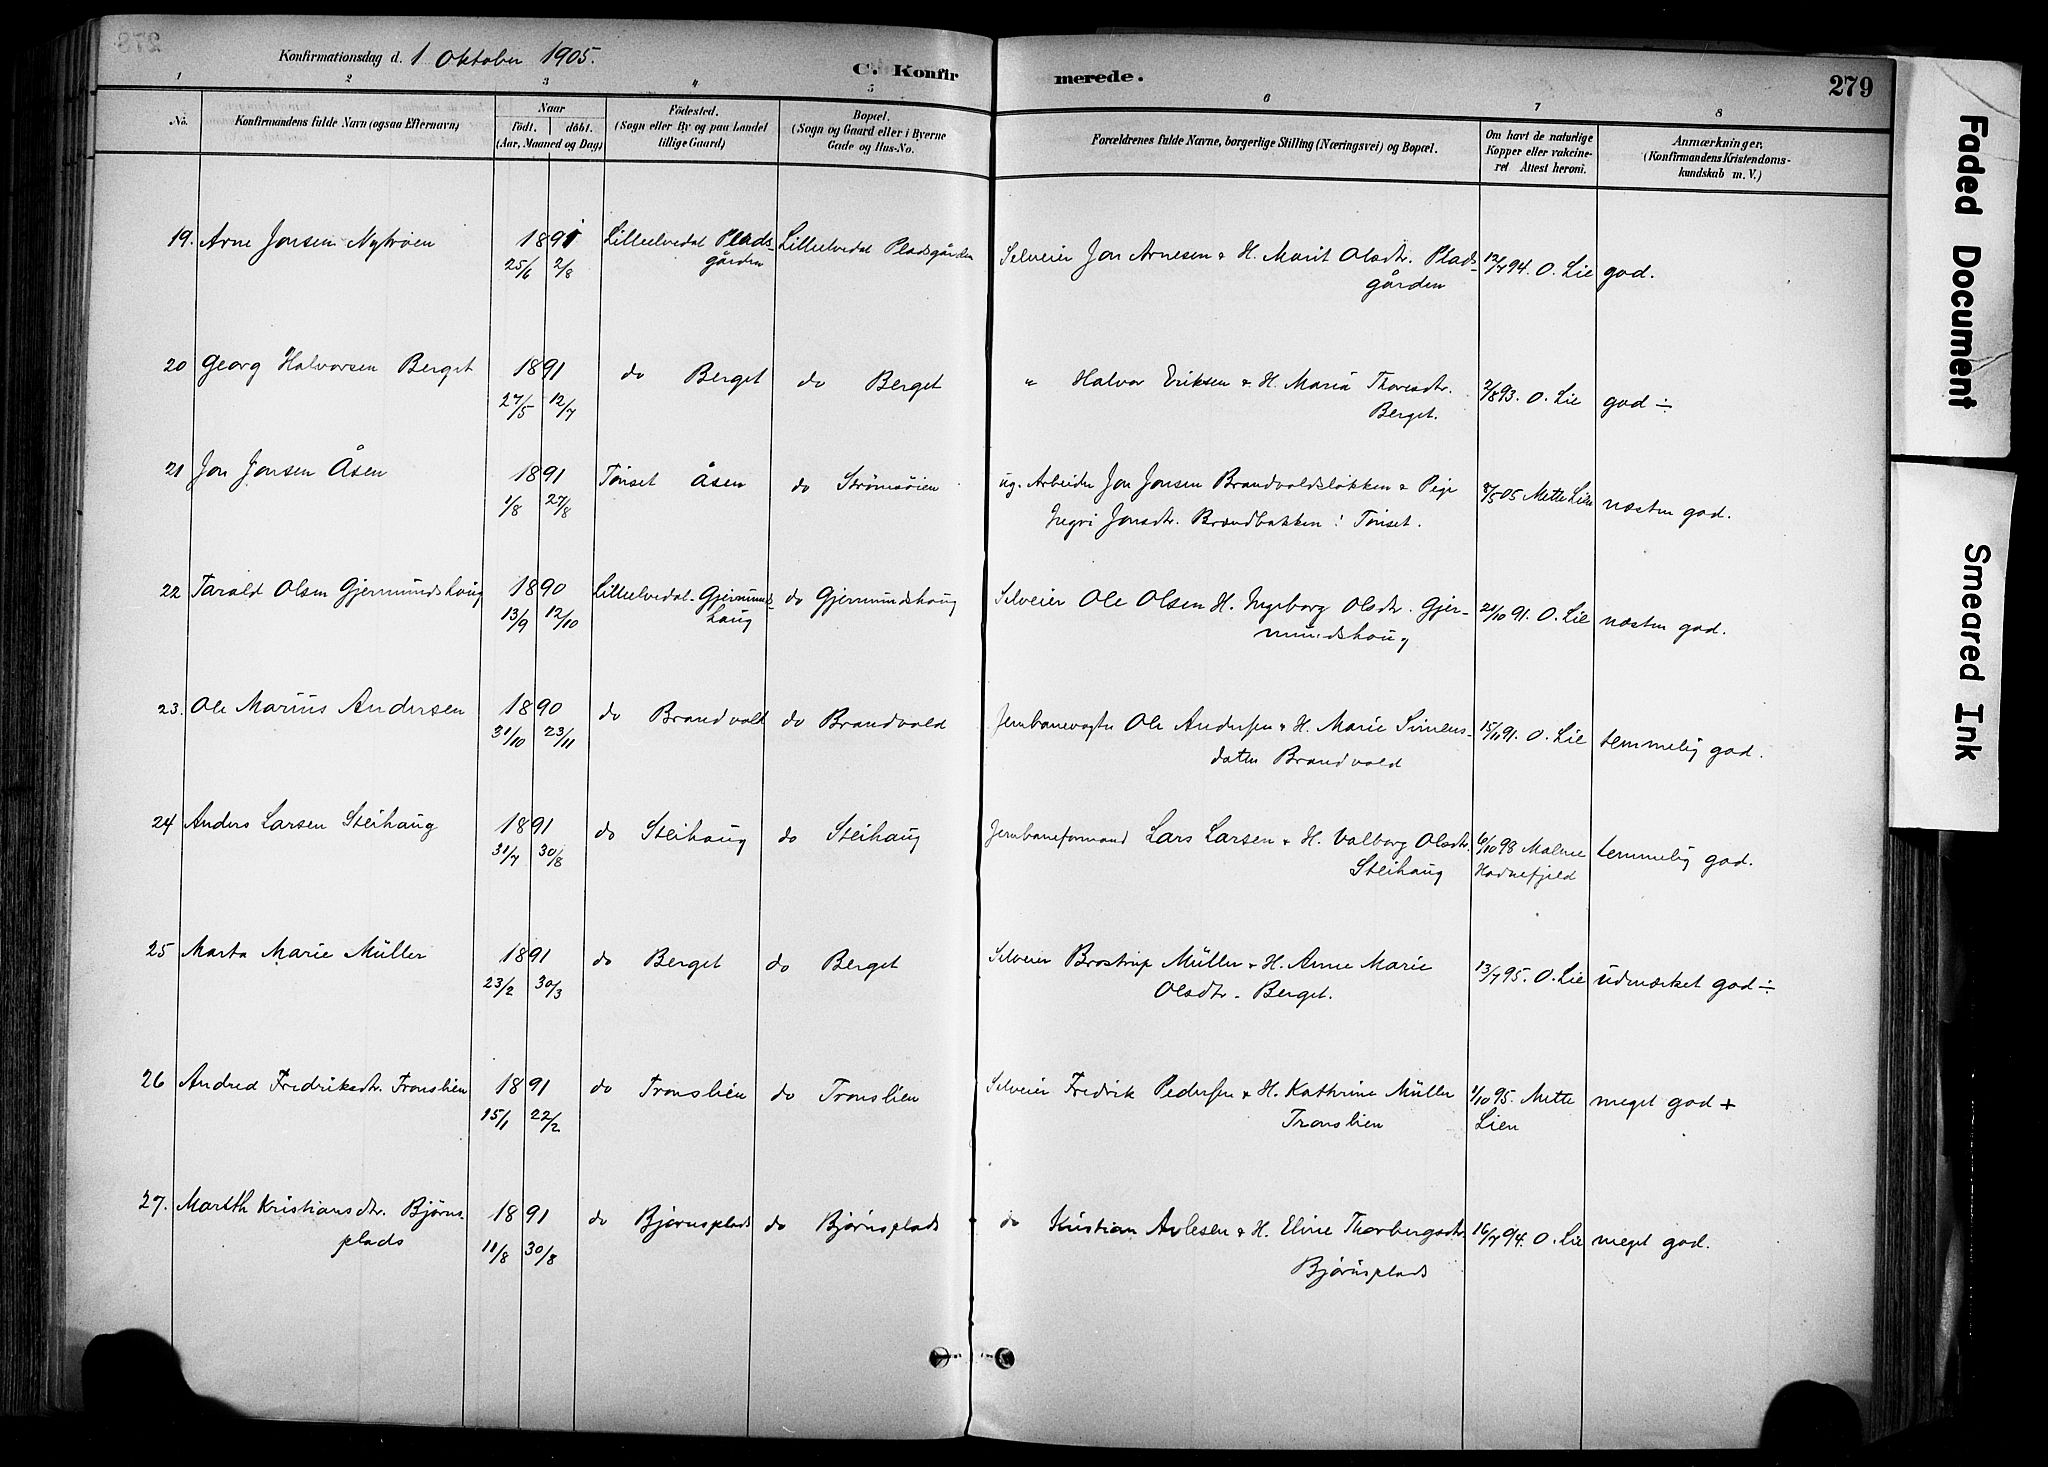 Konfirmationsdag d. 1 Oktober 1905.
C. Konfirmerede.
279
1 2 3 4 5 6 7 8
No.
Konfirmandens fulde Navn (ogsaa Efternavn)
Naar
födt. döbt.
(Aar, Maaned og Dag)
Födested.
(Sogn eller By og paa Landet
tillige Gaard)
Bopæl.
(Sogn og Gaard eller i Byerne
Gade og Hus-No.
Forældrenes fulde Navne, borgerlige Stilling (Næringsvei) og Bopæl.
Om havt de naturlige
Kopper eller vakcine-
ret Attest heroni.
Anmærkninger.
(Konfirmandens Kristendoms-
kundskab m. V.)
19. Arne Jonsen Nytrøen 1891 Lilleelvedal Plads- Lilleelvedal Pladsgården Selveier Jon Arnesen & H. Marit Olsdtr. Plads- 12/7 94. O. Lie god.
25/6 2/8 gården gården
20 Georg Halvorsen Berget 1891 do Berget do Berget " Halvor Eriksen & H. Maria Thoresdtr. 2/8 93. O. Lie god ÷
27/5 12/7 Berget.
21 Jon Jonsen Åsen 1891 Tønset Åsen do Strømsøien ug. Arbeider Jon Jonsen Brandvoldsløkken & Pige 8/5 05 Mette Lien næsten god.
1/8 27/8 Ingri Jonsdtr. Brændbakken i Tønset.
22 Tarald Olsen Gjermundshoug 1890 Lilleelvedal Gjermunds- do Gjermundshoug Selveier Ole Olsen H. Ingeborg Olsdtr. Gjer- 21/10 91. O. Lie næsten god.
13/9 12/10 houg mundshoug
23. Ole Marius Andersen 1890 do Brandvold do Brandvold Jernbanevogter Ole Andersen & H. Marie Simens- 15/11 91. O. Lie temmelig god.
31/10 23/11 datter Brandvold
24 Anders Larsen Steihaug 1891 do Steihaug do Steihaug Jernbaneformand Lars Larsen & H. Valborg Olsdtr. 6/10 98 Malene temmelig god.
31/7 30/8 Steihaug Hodnefjeld
25 Marta Marie Müller 1891 do Berget do Berget Selveier Brostrup Müller & H. Anne Marie 13/7 95. O. Lie udmærket god ÷
23/2 30/3 Olsdtr. Berget.
26 Andrea Fredriksdtr. Tronslien 1891 do Tronslien do Tronslien Selveier Fredrik Pedersen & H. Kathrine Müller 1/10 95. Mette meget god +
15/1 22/2 Tronslien Lien
27. Mareth Kristiansdtr. Bjørns- 1891 do Bjørnsplads do Bjørnsplads do Kristian Avlesen & H. Eline Thorbergsdtr. 16/7 94. O. Lie meget god.
plads 11/8 30/8 Bjørnsplads
Faded Document
Smeared Ink